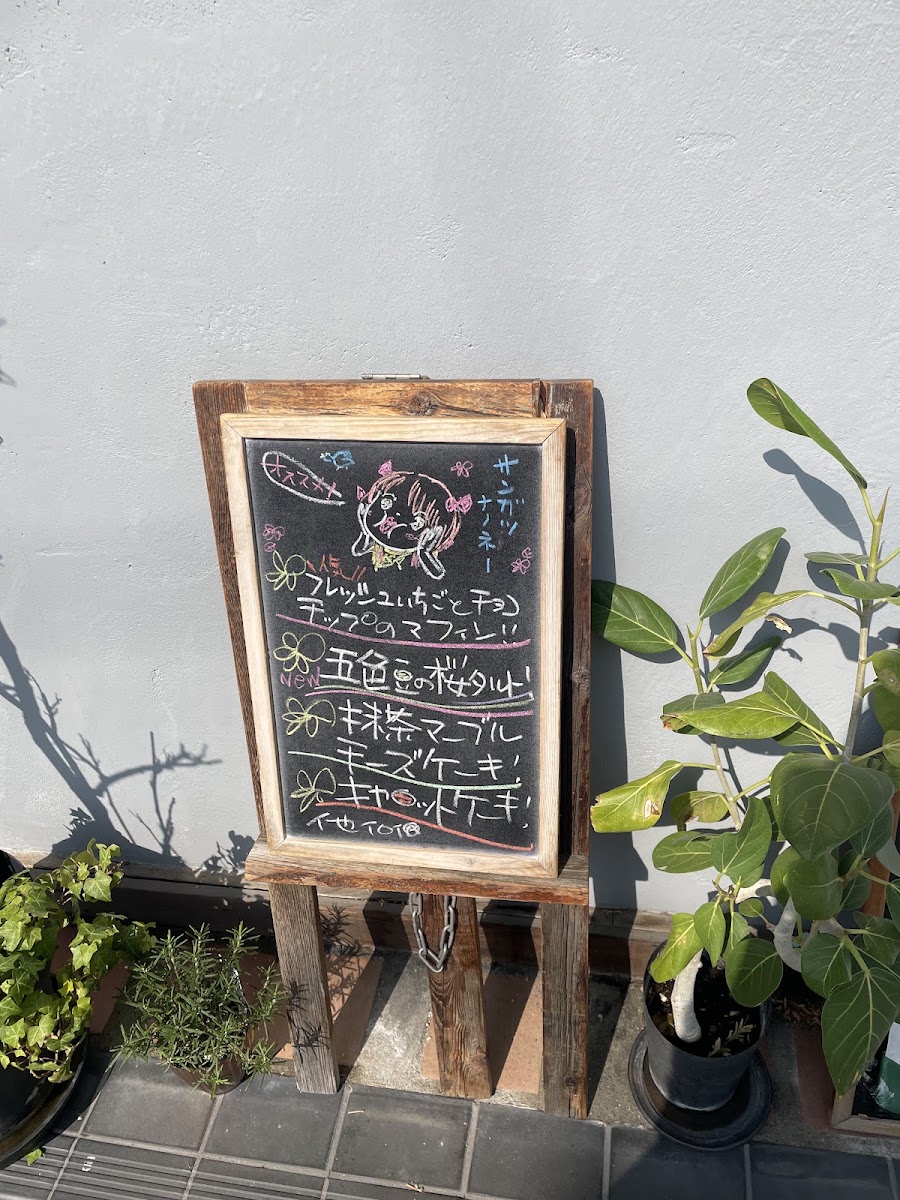 オススメ
サンガツ
ナノネー
人気!!
フレッシュいちごとチョコ
チップのマフィン!!
NEW 五色豆の桜タルト!
抹茶マーブル
チーズケーキ!
キャロットケーキ!
他10個